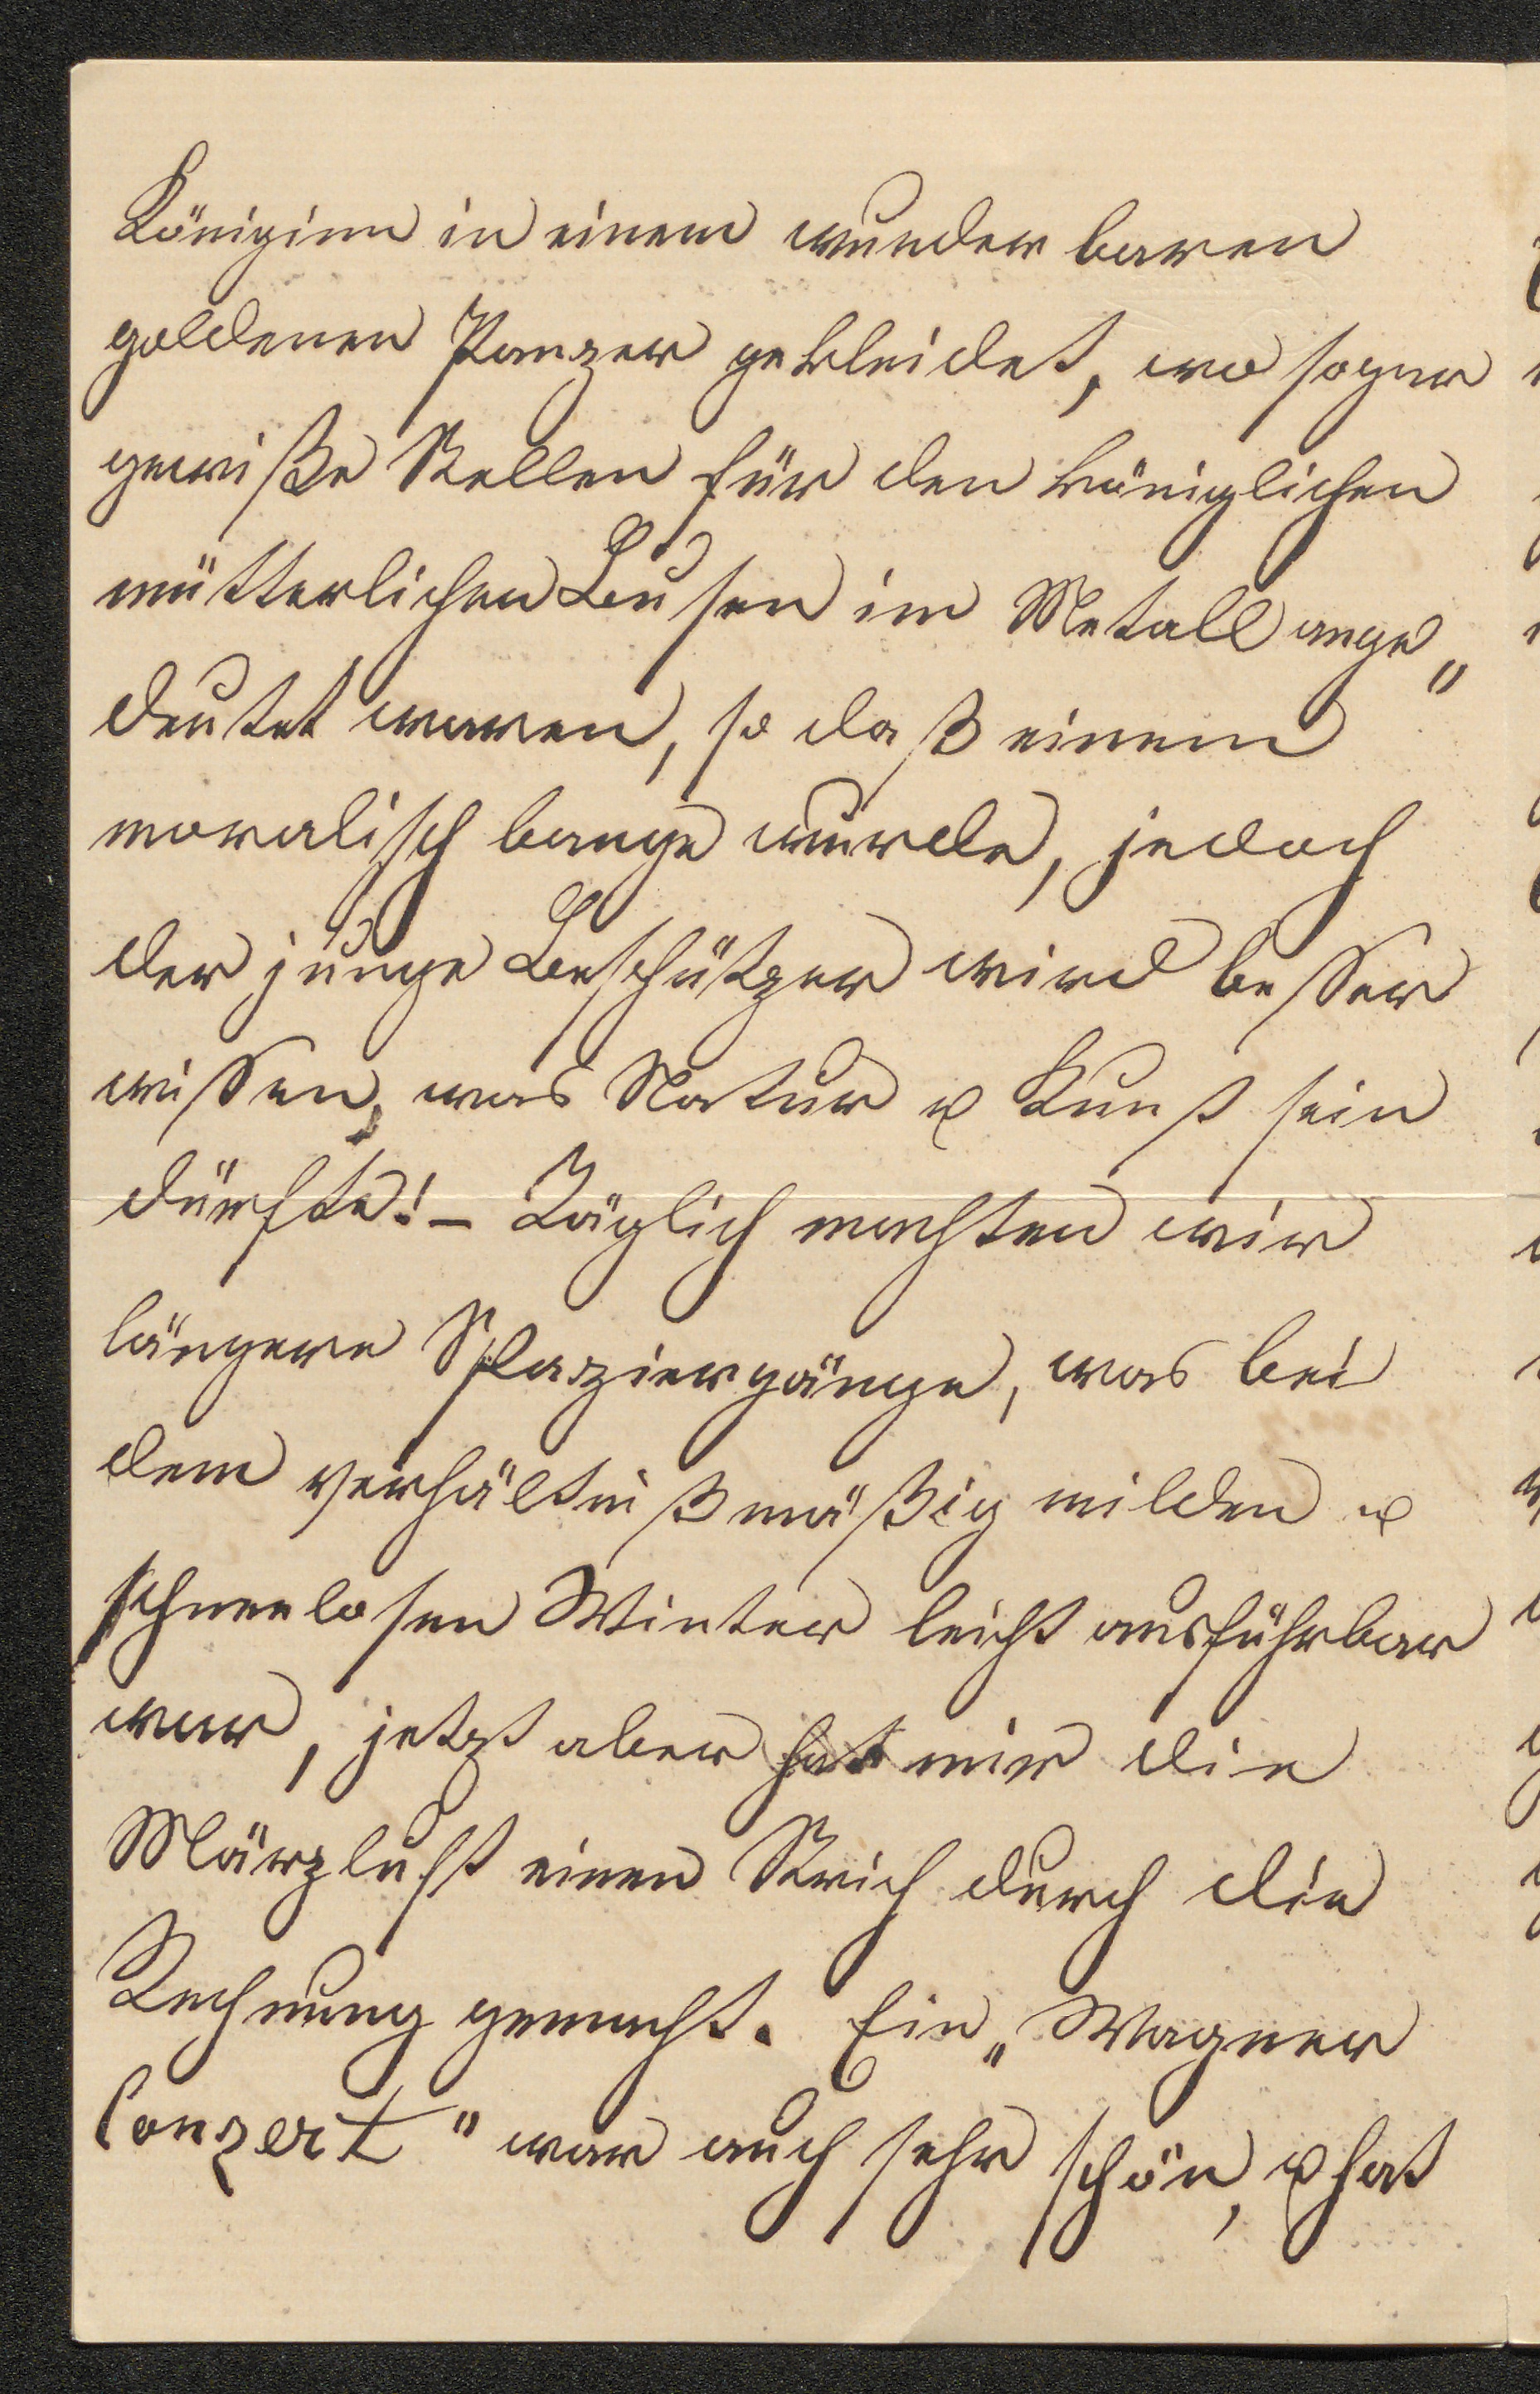 Königinn in einem wunderbaren
goldenen Panzer gekleidet, wo sogar
gewiße Stellen für den königlichen
mütterlichen Busen im Metall ange„
deutet waren, so daß einem
moralisch bange wurde, jedoch
der junge Beschützer wird besser
wissen, was Natur u Kunst sein
dürfte! – Täglich machten wir
längere Spaziergänge, was bei
dem verhältnißmäßig milden u
schneelosen Winter leicht ausführbar
war, jetzt aber hat mir die
Märzluft einen Strich durch die
Rechnung gemacht. Ein „Wagner
Conzert" war auch sehr schön, u hat